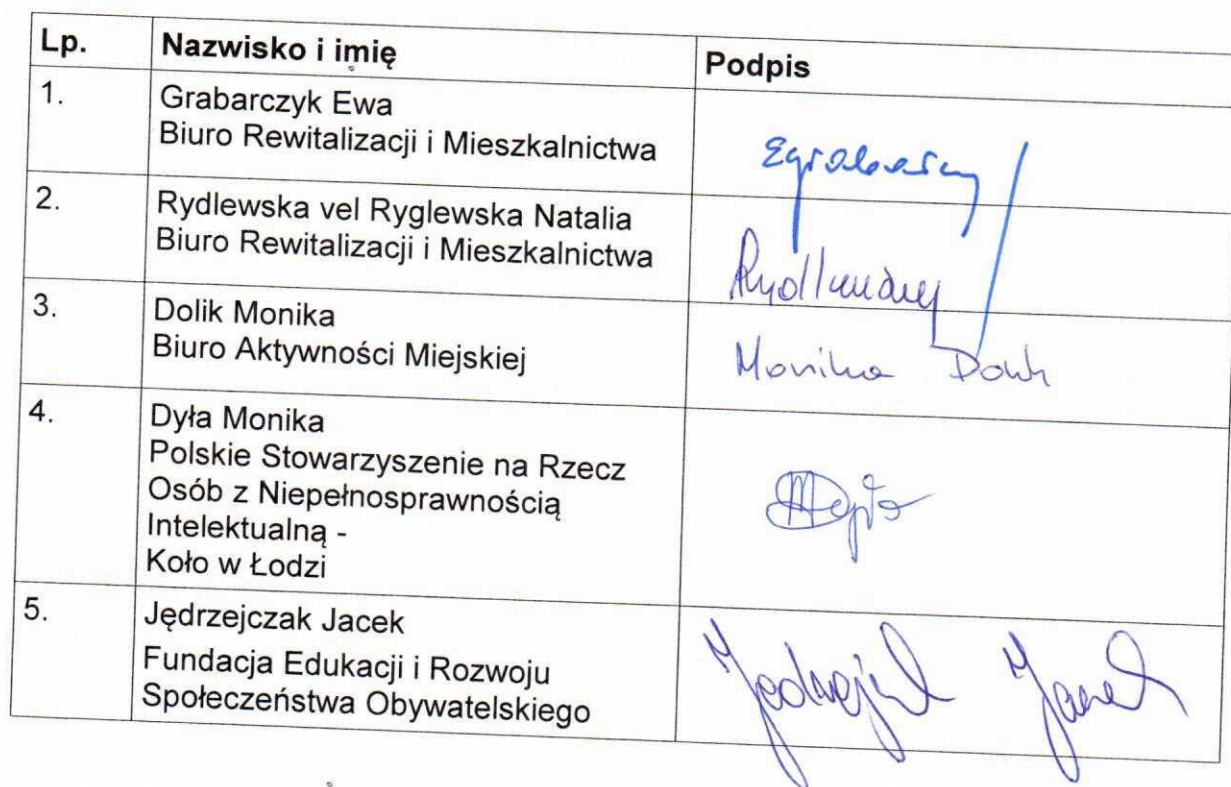 Lp. Nazwisko i imię Podpis
1. Grabarczyk Ewa
Biuro Rewitalizacji i Mieszkalnictwa
2. Rydlewska vel Ryglewska Natalia
Biuro Rewitalizacji i Mieszkalnictwa
3. Dolik Monika
Biuro Aktywności Miejskiej
Monika
4. Dyła Monika
Polskie Stowarzyszenie na Rzecz
Osób z Niepełnosprawnością
Intelektualną -
Koło w Łodzi
5. Jędrzejczak Jacek
Fundacja Edukacji i Rozwoju
Społeczeństwa Obywatelskiego